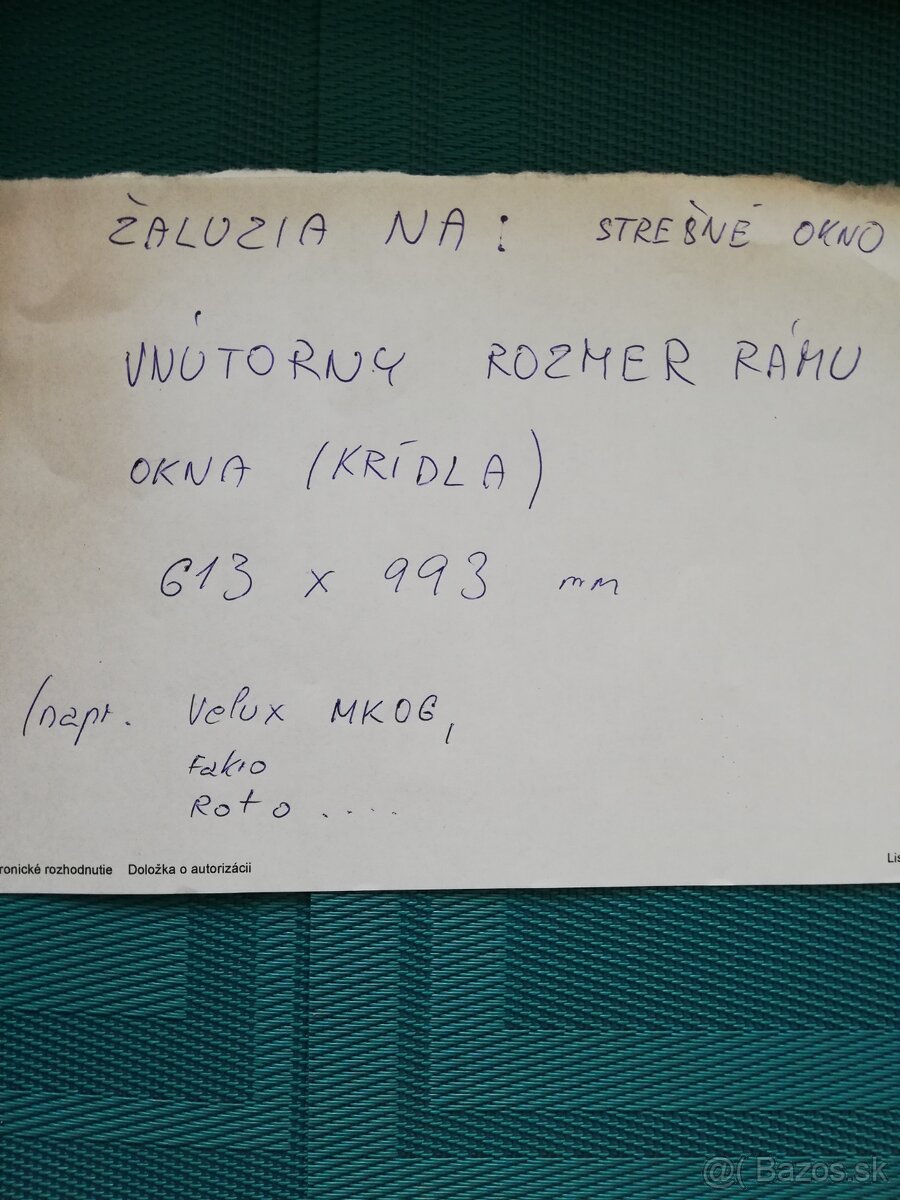 ŽALUZIA NA: STREŠNÉ OKNO
VNÚTORNY ROZMER RÁMU
OKNA (KRÍDLA)
613 x 993 mm
(napr. Velux MK06,
Fakro
Roto ....
ronické rozhodnutie Doložka o autorizácii
Lis
@( Bazos.sk